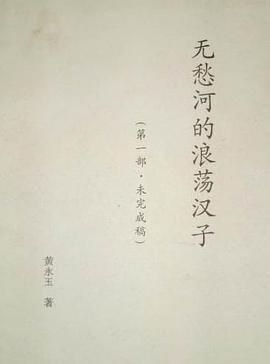 无愁河的浪荡汉子
(第一部·未完成稿)
黄永玉 著